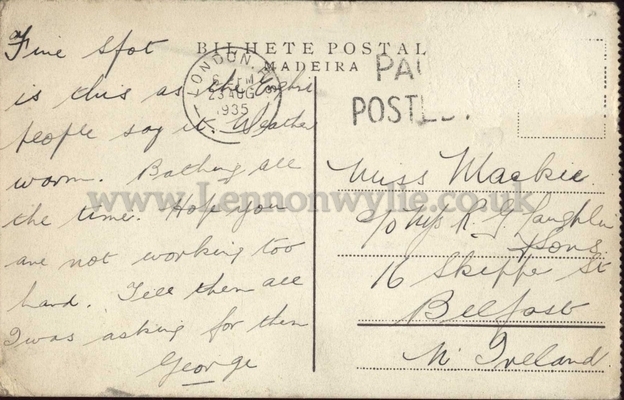 a
Fine spot
is this as the
people say it. Weather
warm. Bathing all
the time. Hope you
are not working too
hard. Tell them all
I was asking for them
George
BILHETE POSTAL
MADEIRA
LONDON.
23 AUG
1935
PAI
POSTE
www.Lennonwylie.co.uk
Miss Mackie
c/o Mrs R. G Laughlin
& Sons
16 Skipper St
Belfast
N. Ireland